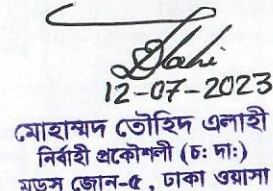 12-07-2023
মোহাম্মদ তৌহিদ এলাহী
নির্বাহী প্রকৌশলী (চ: দা:)
মডস জোন-৫, ঢাকা ওয়াসা